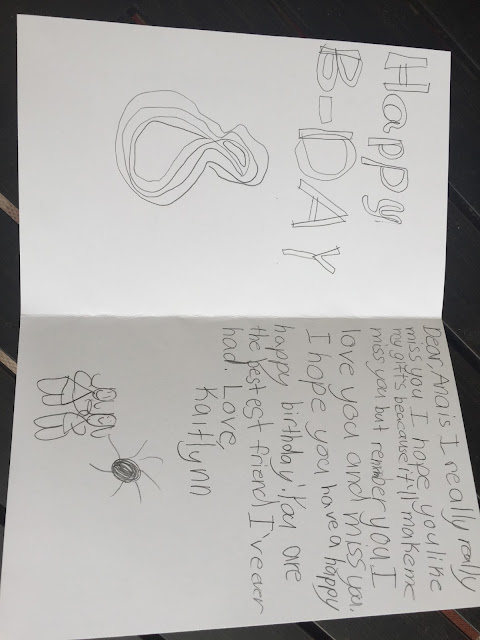 Happy
B-DAY
8
Dear, Anais I really really
miss you I hope you like
my gifts beacause it'll make me
miss you but remember you I
love you and miss you.
I hope you have a happy
happy birthday! You are
the bestest friend I've ever
had. Love,
Kaitlynn